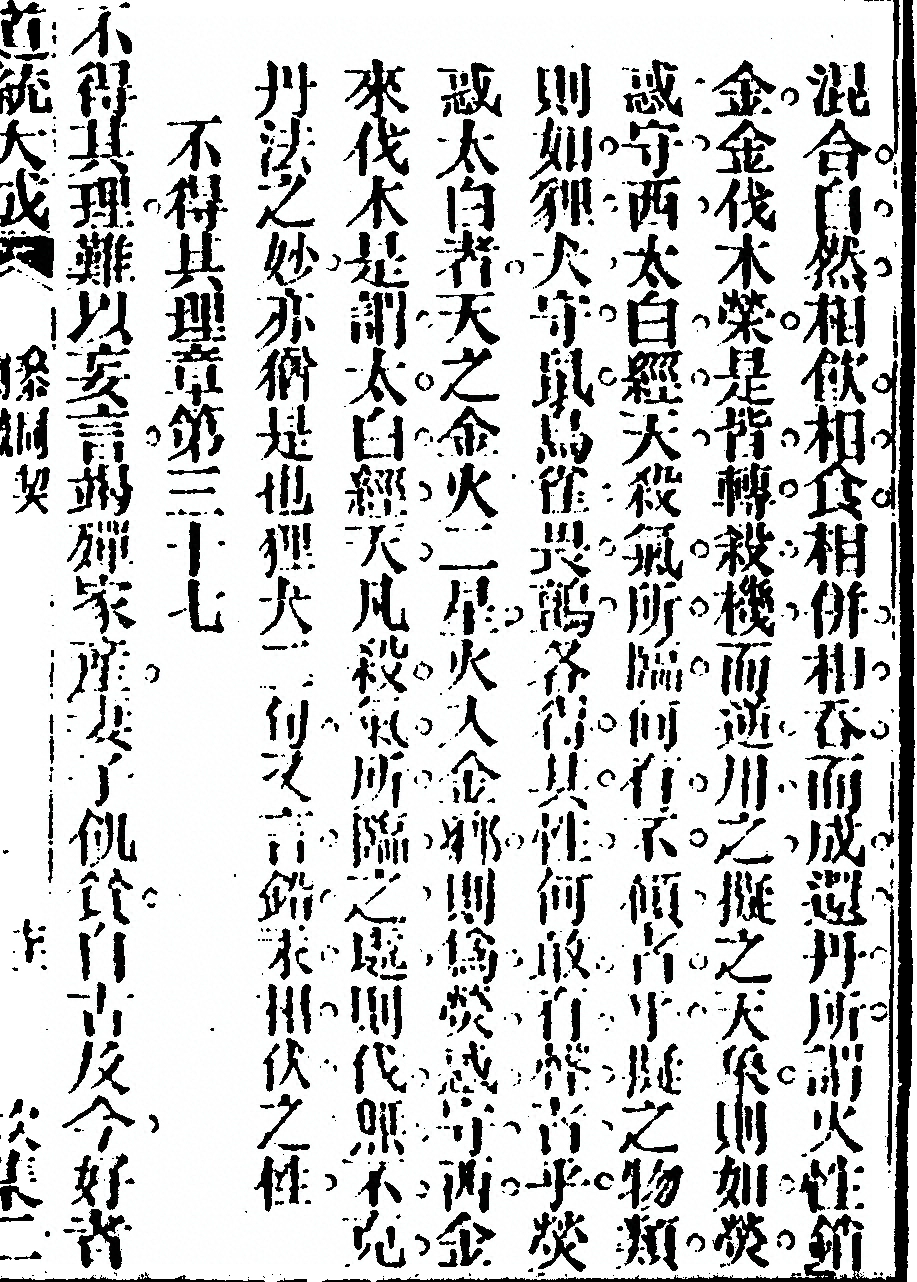 混合自然相飲相食相併相吞而成還丹所謂火性銷
金金伐木榮是皆轉殺機而逆用之擬之天象則如熒
惑守西太白經天殺氣所臨何有不傾者乎擬之物類
則如狸犬守鼠鳥雀畏鸇各得其性何敢有聲者乎熒
惑太白者天之金火二星火入金鄉則為熒惑守西金
來伐木是謂太白經天凡殺氣所臨之處則伐無不克
丹法之妙亦猶是也狸犬二句又言鉛汞相伏之性
不得其理章第三十七
不得其理難以妄言竭殫家產妻子飢貧自古及今好者
道統大成